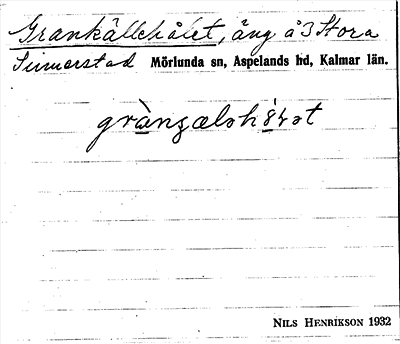 Grankällehålet, äng å 3 Stora
Simmerstad Mörlunda sn, Aspelands hd, Kalmar län.
NILS HENRIKSON 1932